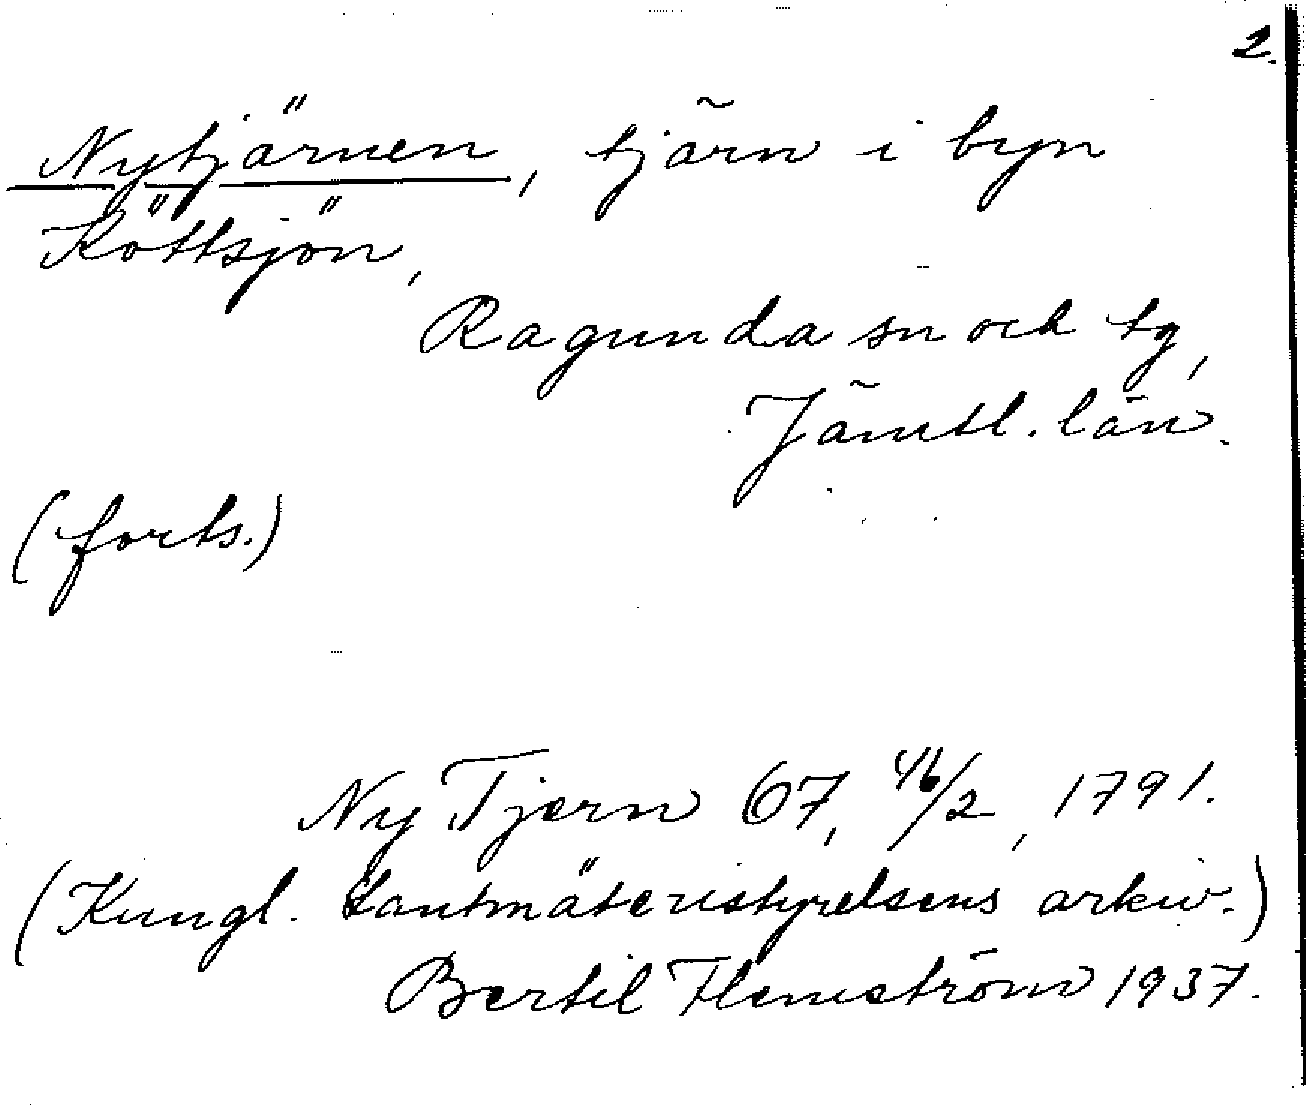 2.
Nytjärnen, tjärn i byn
Köttsjön,
Ragunda sn och tg,
Jämtl. län.
(forts.)
Ny Tjern 67, 16/2, 1791.
(Kungl. Lantmäteristyrelsens arkiv.)
Bertil Flemström 1937.